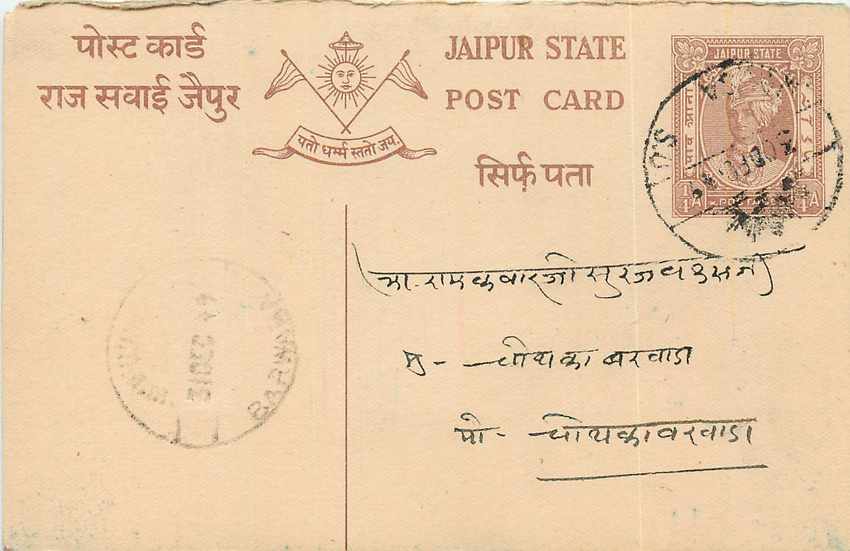 पोस्ट कार्ड
राज सवाई जैपुर
यतो धर्म्म स्ततो जय.
JAIPUR STATE
POST CARD
सिर्फ़ पता
JAIPUR STATE
पाव आना
1/4 A
POSTAGE
1/4 A
भा. रामकवारजी सुरजबक्सजी
मु - चोथका बरवाडा
पो - चोथका बरवाडा
BARWARA